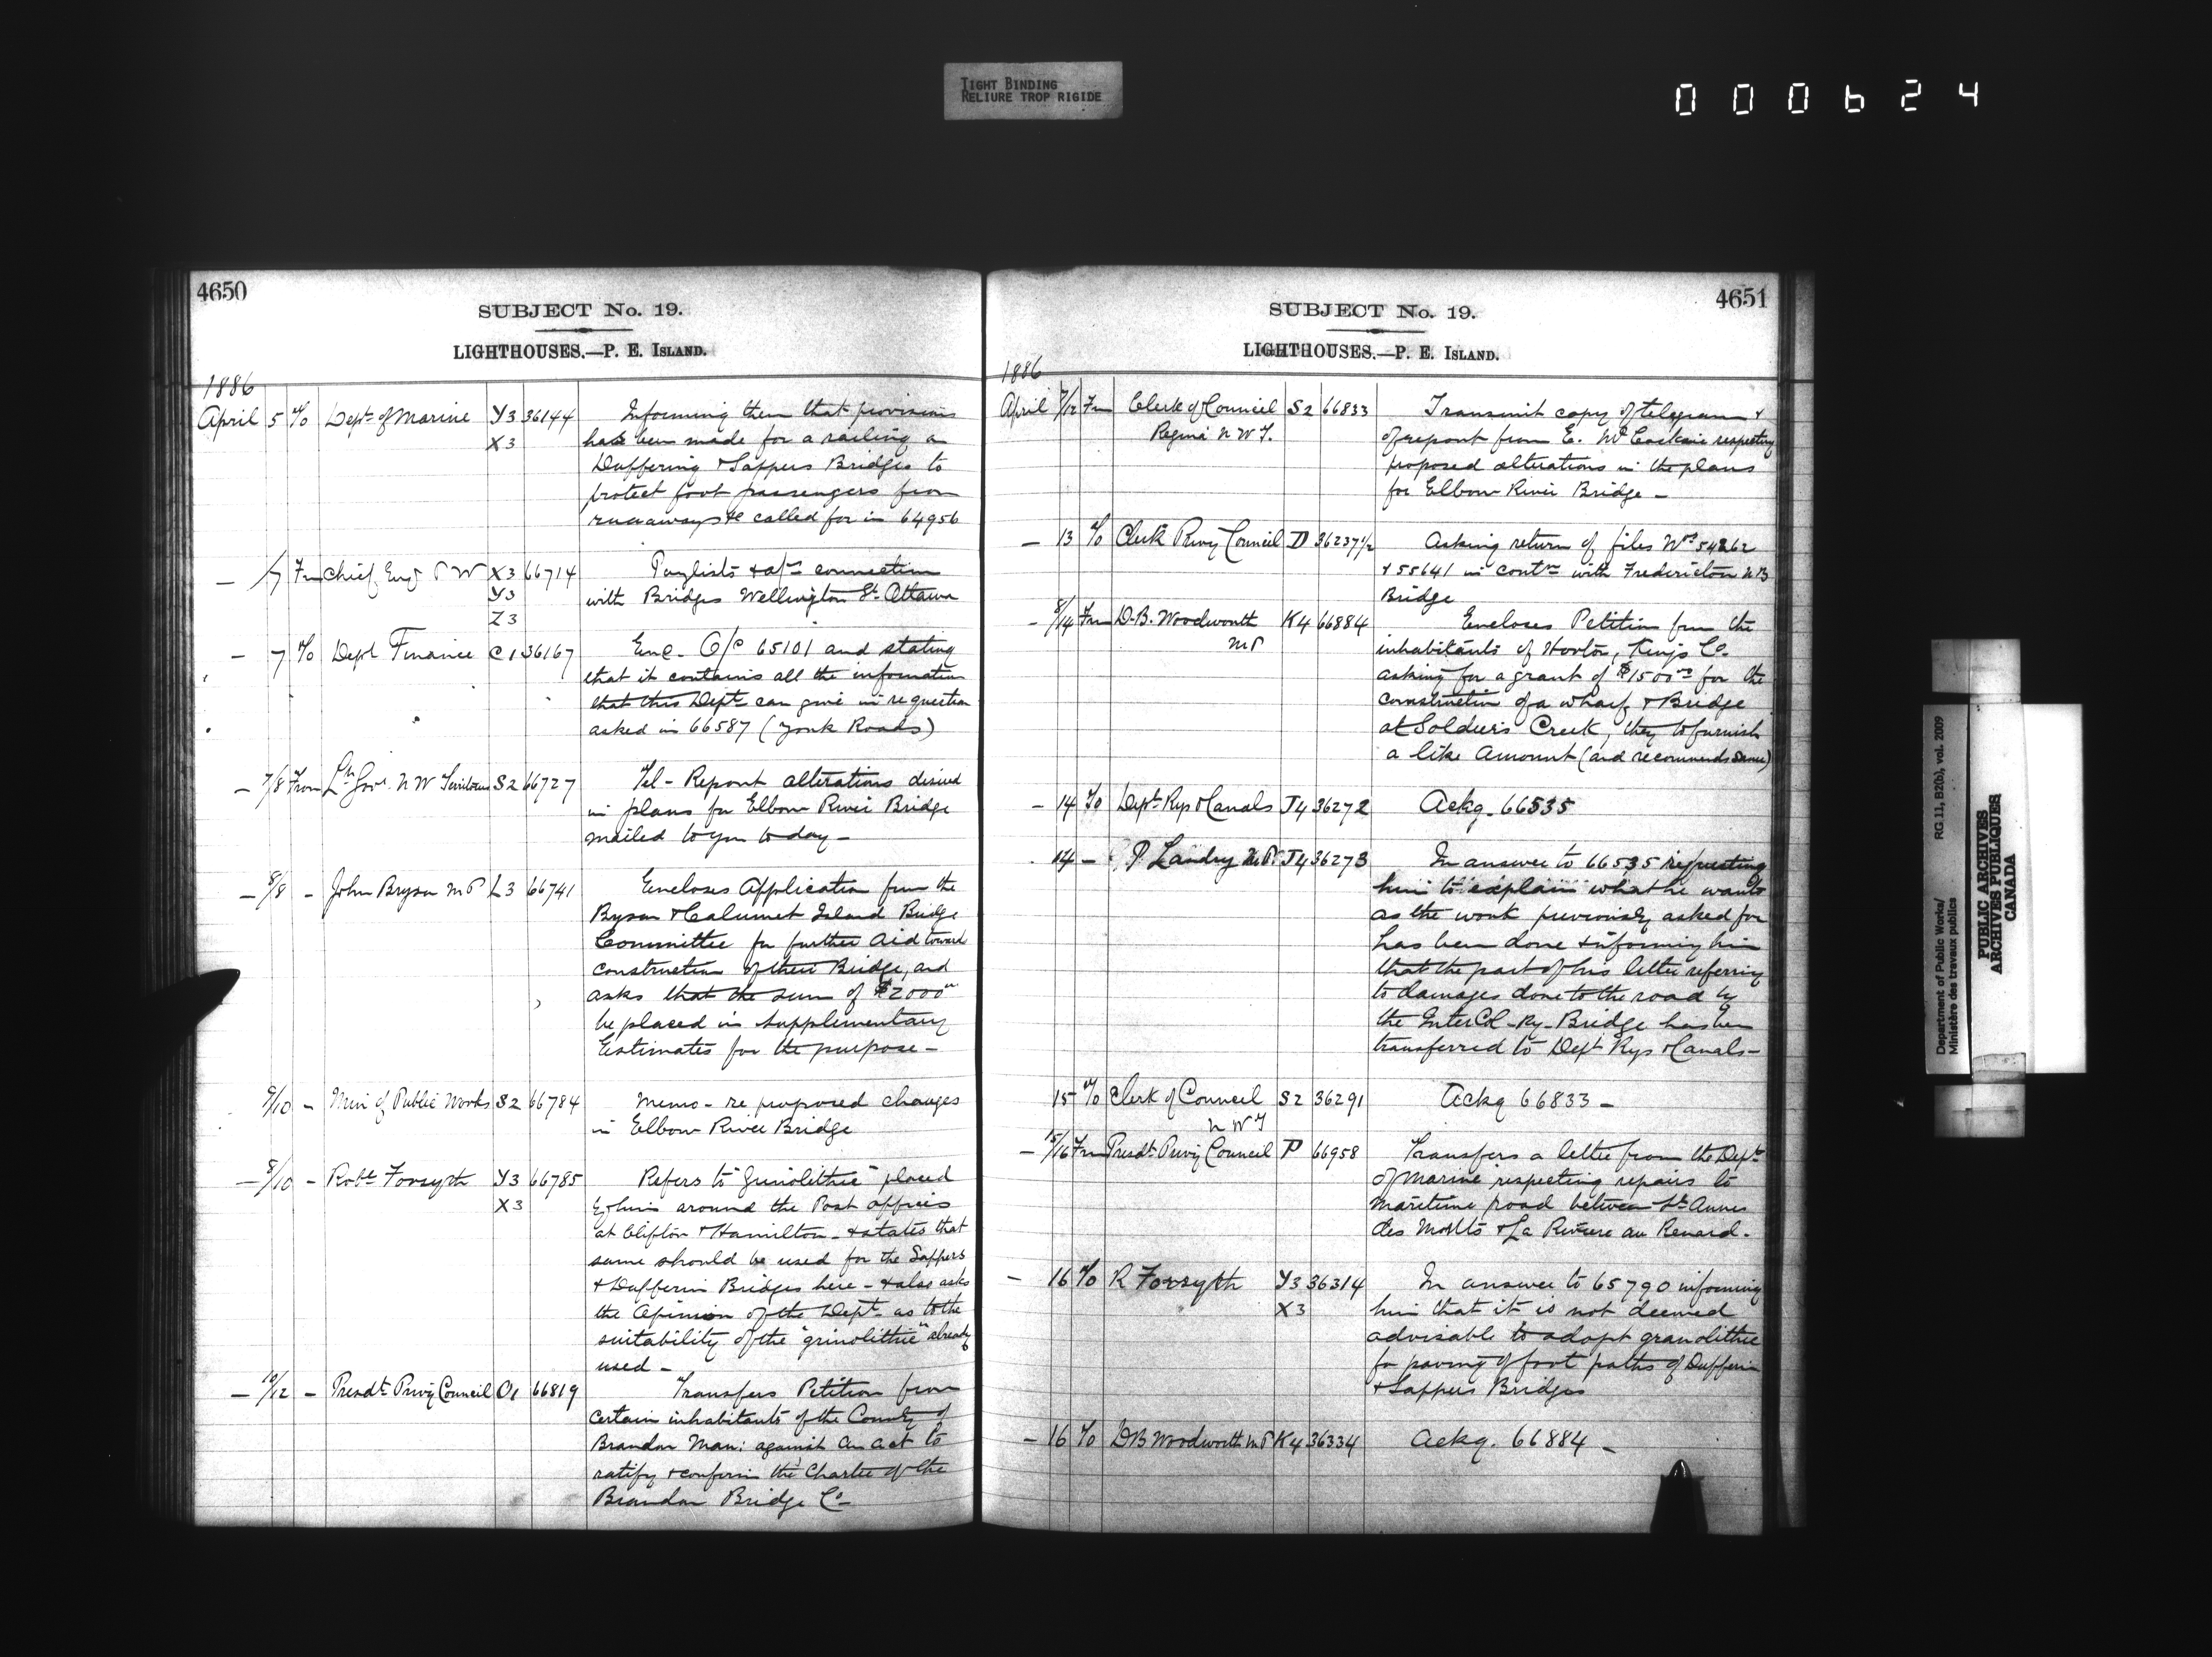 TIGHT BINDING
RELIURE TROP RIGIDE
000624
4650
SUBJECT No. 19.
LIGHTHOUSES.—P. E. ISLAND.
1886
April 5 To Dept of Marine Y3 36144 Informing them that provisions
X3 has been made for a railing on
Duffering & Sappers Bridges to
protect foot passengers from
runaways &c called for in 64956
— /7 Fm Chief Engr P W X3 66714 Paylists & a/cs connection
Y3 with Bridges Wellington St Ottawa
Z3
— 7 To Dept Finance C1 36167 Enc. O/C 65101 and stating
that it contains all the information
that this Dept can give in re question
asked in 66587 (York Roads)
— 7/8 From Lt Gov. N W Territories S2 66727 Tel - Report alterations desired
in plans for Elbow River Bridge
mailed to you to day —
— 8/8 - John Bryson M P L3 66741 Encloses Application from the
Byson & Calumet Island Bridge
Committee for further aid toward
construction of their Bridge, and
asks that the sum of $2000
be placed in supplementary
Estimates for the purpose —
9/10 - Min of Public Works S2 66784 Memo - re proposed changes
in Elbow River Bridge
— 8/10 - Robt Forsyth Y3 66785 Refers to "Grinolithic" placed
X3 by him around the Post offices
at Clifton & Hamilton - & states that
same should be used for the Sappers
& Dufferin Bridges here - & also asks
the Opinion of the Dept as to the
suitability of the "grinolithic" already
used —
— 10/12 - Presdt Privy Council O1 66819 Transfers Petition from
certain inhabitants of the County of
Brandon Man: against an act to
ratify & confirm the Charter of the
Brandon Bridge Co —
4651
SUBJECT No. 19.
LIGHTHOUSES.—P. E. ISLAND.
1886
April 7/12 Fm Clerk of Council S2 66833 Transmit copy of telegram &
Regina N W T. of report from E. respecting
proposed alterations in the plans
for Elbow River Bridge —
— 13 To Clerk Privy Council D 36237½ Asking return of files Nos 54862
& 55641 in contn with Fredericton N B
Bridge
— 8/14 Fm D. B. Woodworth K4 66884 Encloses Petition from the
M P inhabitants of Horton, Kings Co.
asking for a grant of $1500 for the
construction of a wharf & Bridge
at Soldiers Creek, they to furnish
a like amount (and recommends same)
— 14 To Dept Rys & Canals J4 36272 Ackg. 66535
14 — P. Landry M.P. J4 36273 In answer to 66535 requesting
him to explain what he wants
as the work previously asked for
has been done & informing him
that the part of his letter referring
to damages done to the road by
the InterCol - Ry - Bridge has been
transferred to Dept Rys & Canals —
15 To Clerk of Council S2 36291 Ackg 66833 —
N W T
— 15/16 Fm Presdt Privy Council P 66958 Transfers a letter from the Dept
of Marine respecting repairs to
maritime road between St Annes
des Monts & La Riviere au Renard.
— 16 To R Forsyth Y3 36314 In answer to 65790 informing
X3 him that it is not deemed
advisable to adopt granolithic
for paving of foot paths of Dufferin
& Sappers Bridges
— 16 To D B Woodworth M P K4 36334 Ackg. 66884 —
Department of Public Works/ RG 11, B2(b), vol. 2009
Ministère des travaux publics
PUBLIC ARCHIVES
ARCHIVES PUBLIQUES
CANADA